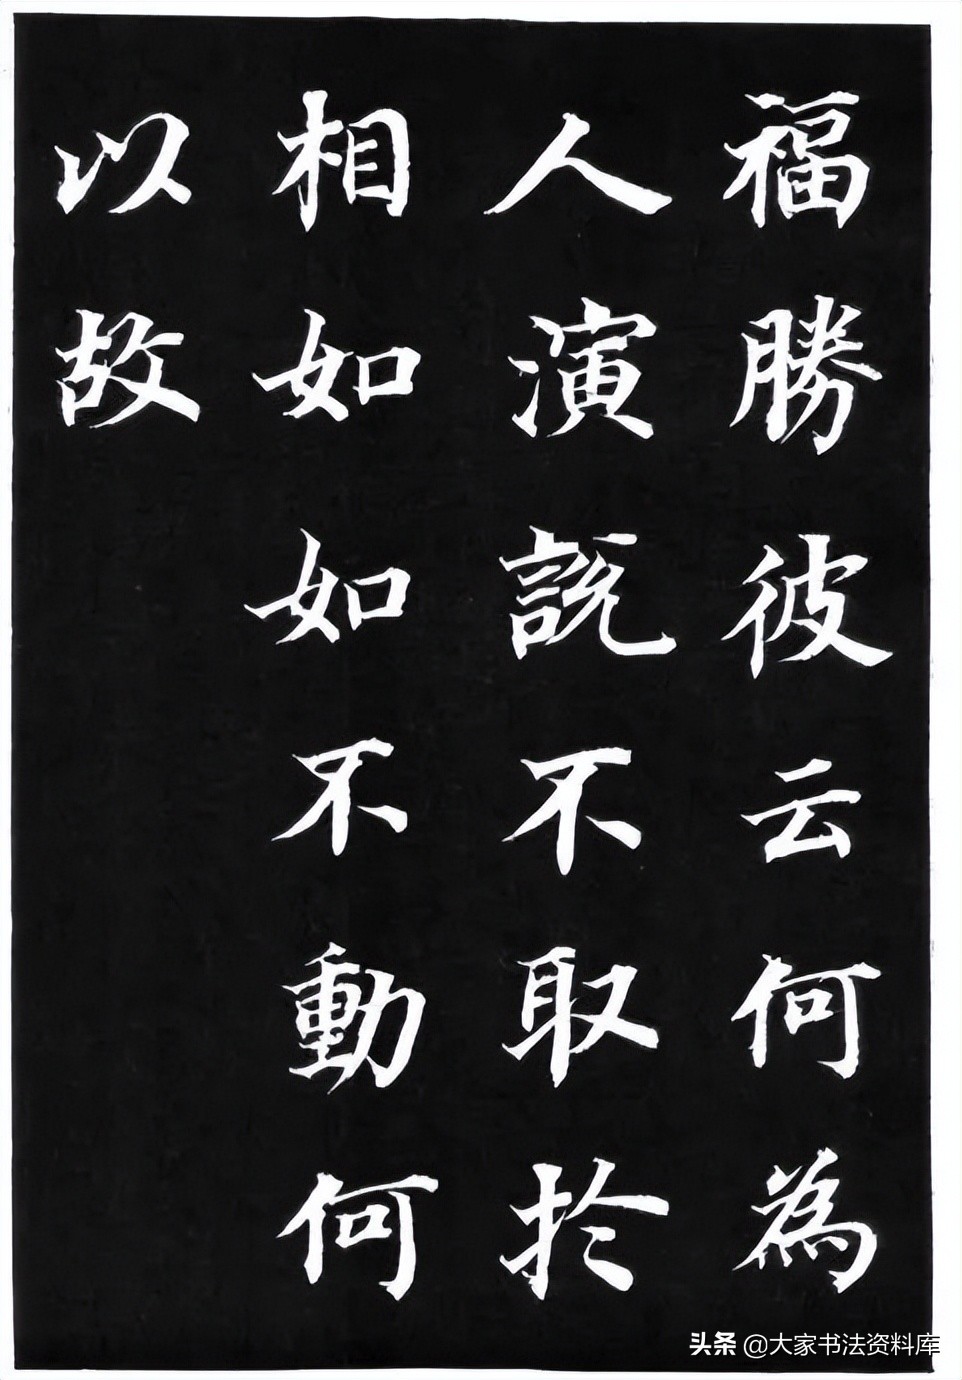 福勝彼云何為
人演説不取於
相如如不動何
以故
头条 @大家书法资料库